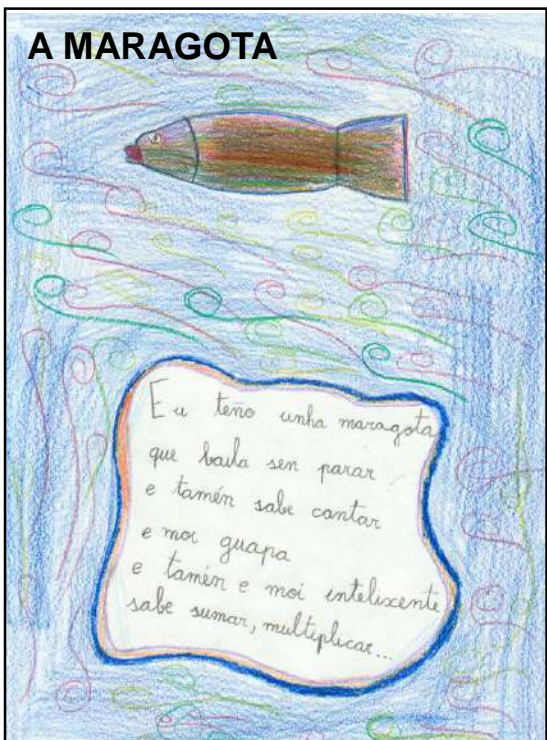 A MARAGOTA
Eu teño unha maragota
que baila sen parar
e tamén sabe cantar
e moi guapa
e tamén e moi intelixente
sabe sumar, multiplicar...